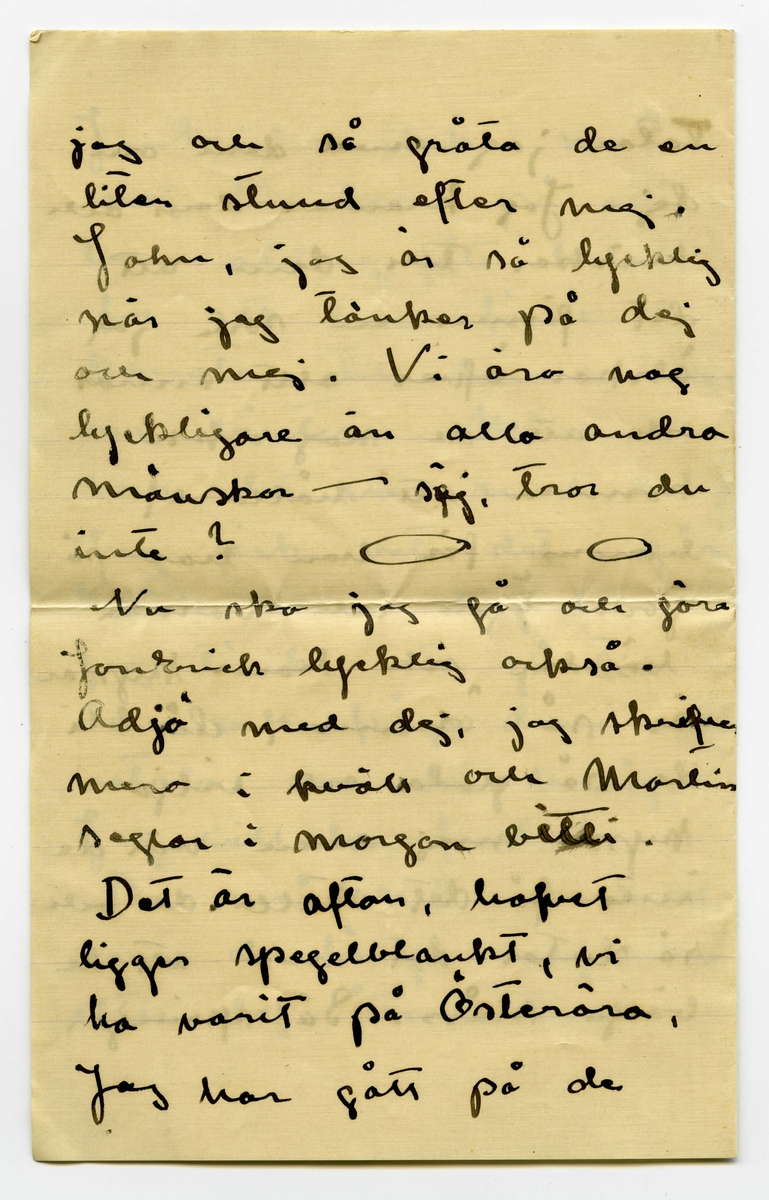 jag och så gråta de en
liten stund efter mej.
John, jag är så lycklig
när jag tänker på dej
och mej. Vi äro nog
lyckligare än alla andra
mänskor — säj, tror du
inte?
Nu ska jag gå och göra
lycklig också.
Adjö med dej, jag skrifver
mera i kväll och Martin
seglar i morgon bitti.
Det är afton, hafvet
ligger spegelblankt, vi
ha varit på Österåra,
Jag har gått på de